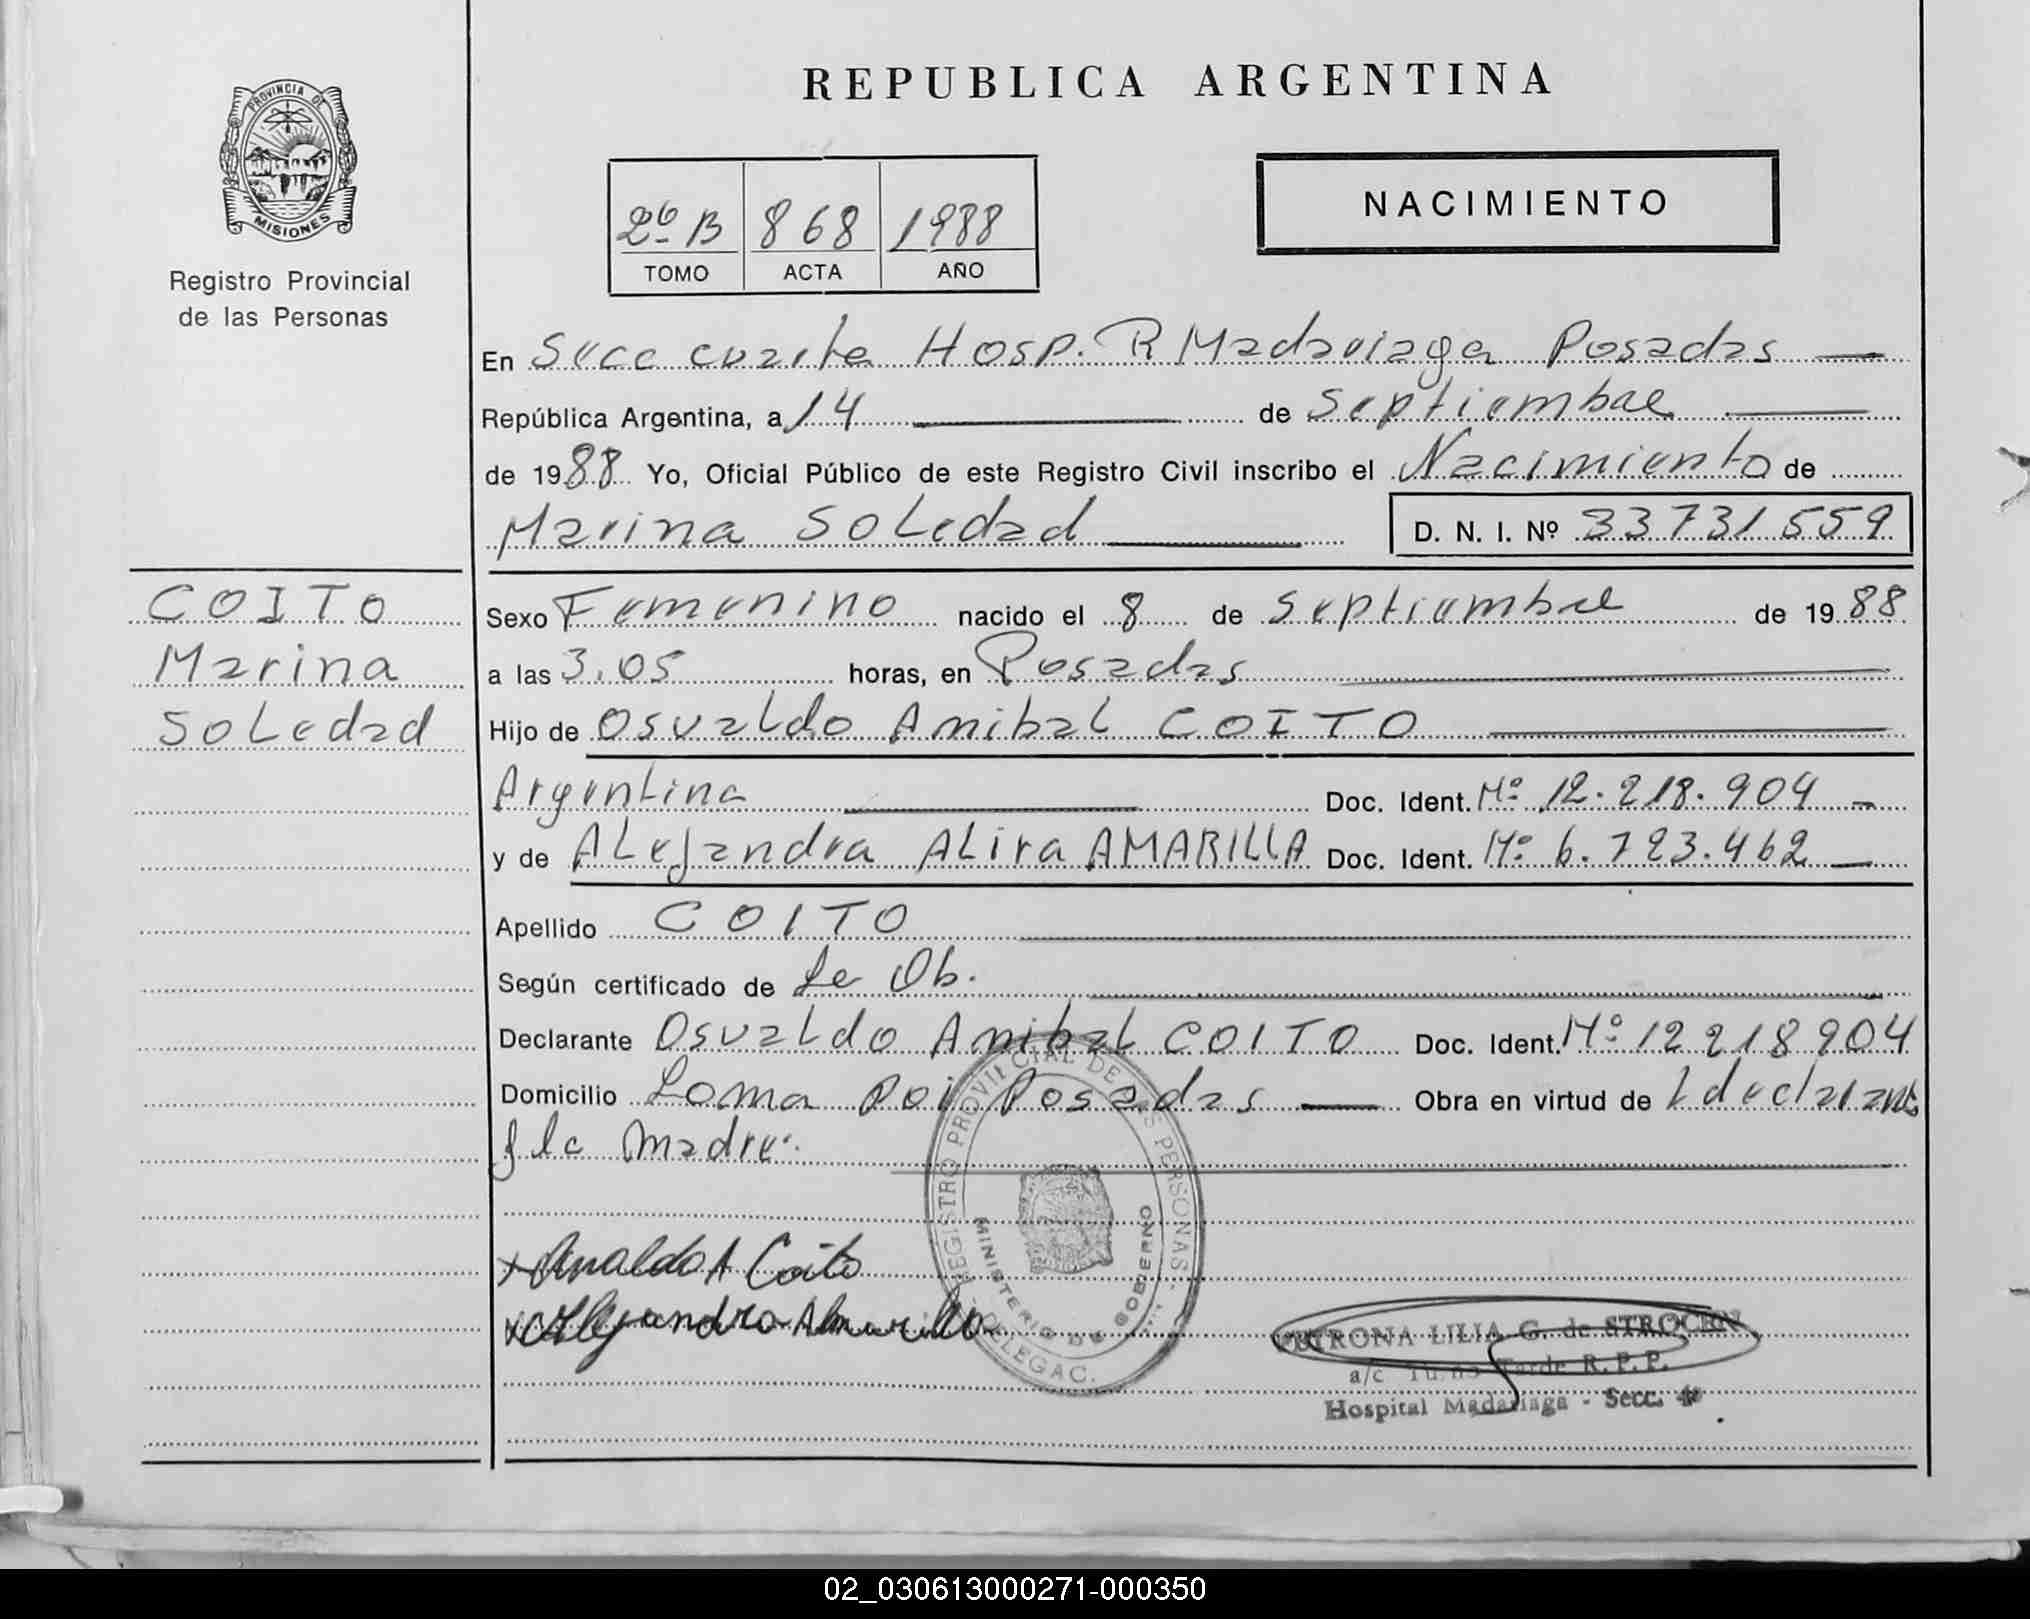 REPUBLICA ARGENTINA
PROVINCIA DE
MISIONES
Registro Provincial
de las Personas
2º B 868 1988
TOMO ACTA AÑO
NACIMIENTO
En Secc cuarta Hosp. R Madariaga Posadas
República Argentina, a 14 de Septiembre
de 1988 Yo, Oficial Público de este Registro Civil inscribo el Nacimiento de
Marina Soledad D. N. I. Nº 33731559
COITO
Marina
Soledad
Sexo Femenino nacido el 8 de Septiembre de 1988
a las 3.05 horas, en Posadas
Hijo de Osvaldo Anibal COITO
Argentina Doc. Ident. Nº 12.218.904
y de Alejandra Alira AMARILLA Doc. Ident. Nº 6.723.462
Apellido COITO
Según certificado de Le Ob.
Declarante Osvaldo Anibal COITO Doc. Ident. Nº 12218904
Domicilio Loma Poi Posadas Obra en virtud de l declarante
y la madre.
REGISTRO PROVINCIAL DE LAS PERSONAS
MINISTERIO DE GOBIERNO
DELEGAC.
A Coito
Alejandra Amarilla
PETRONA LILIA G. de STROCEN
a/c Turno Tarde R. P. P.
Hospital Madariaga - Secc. 4º
02_030613000271-000350